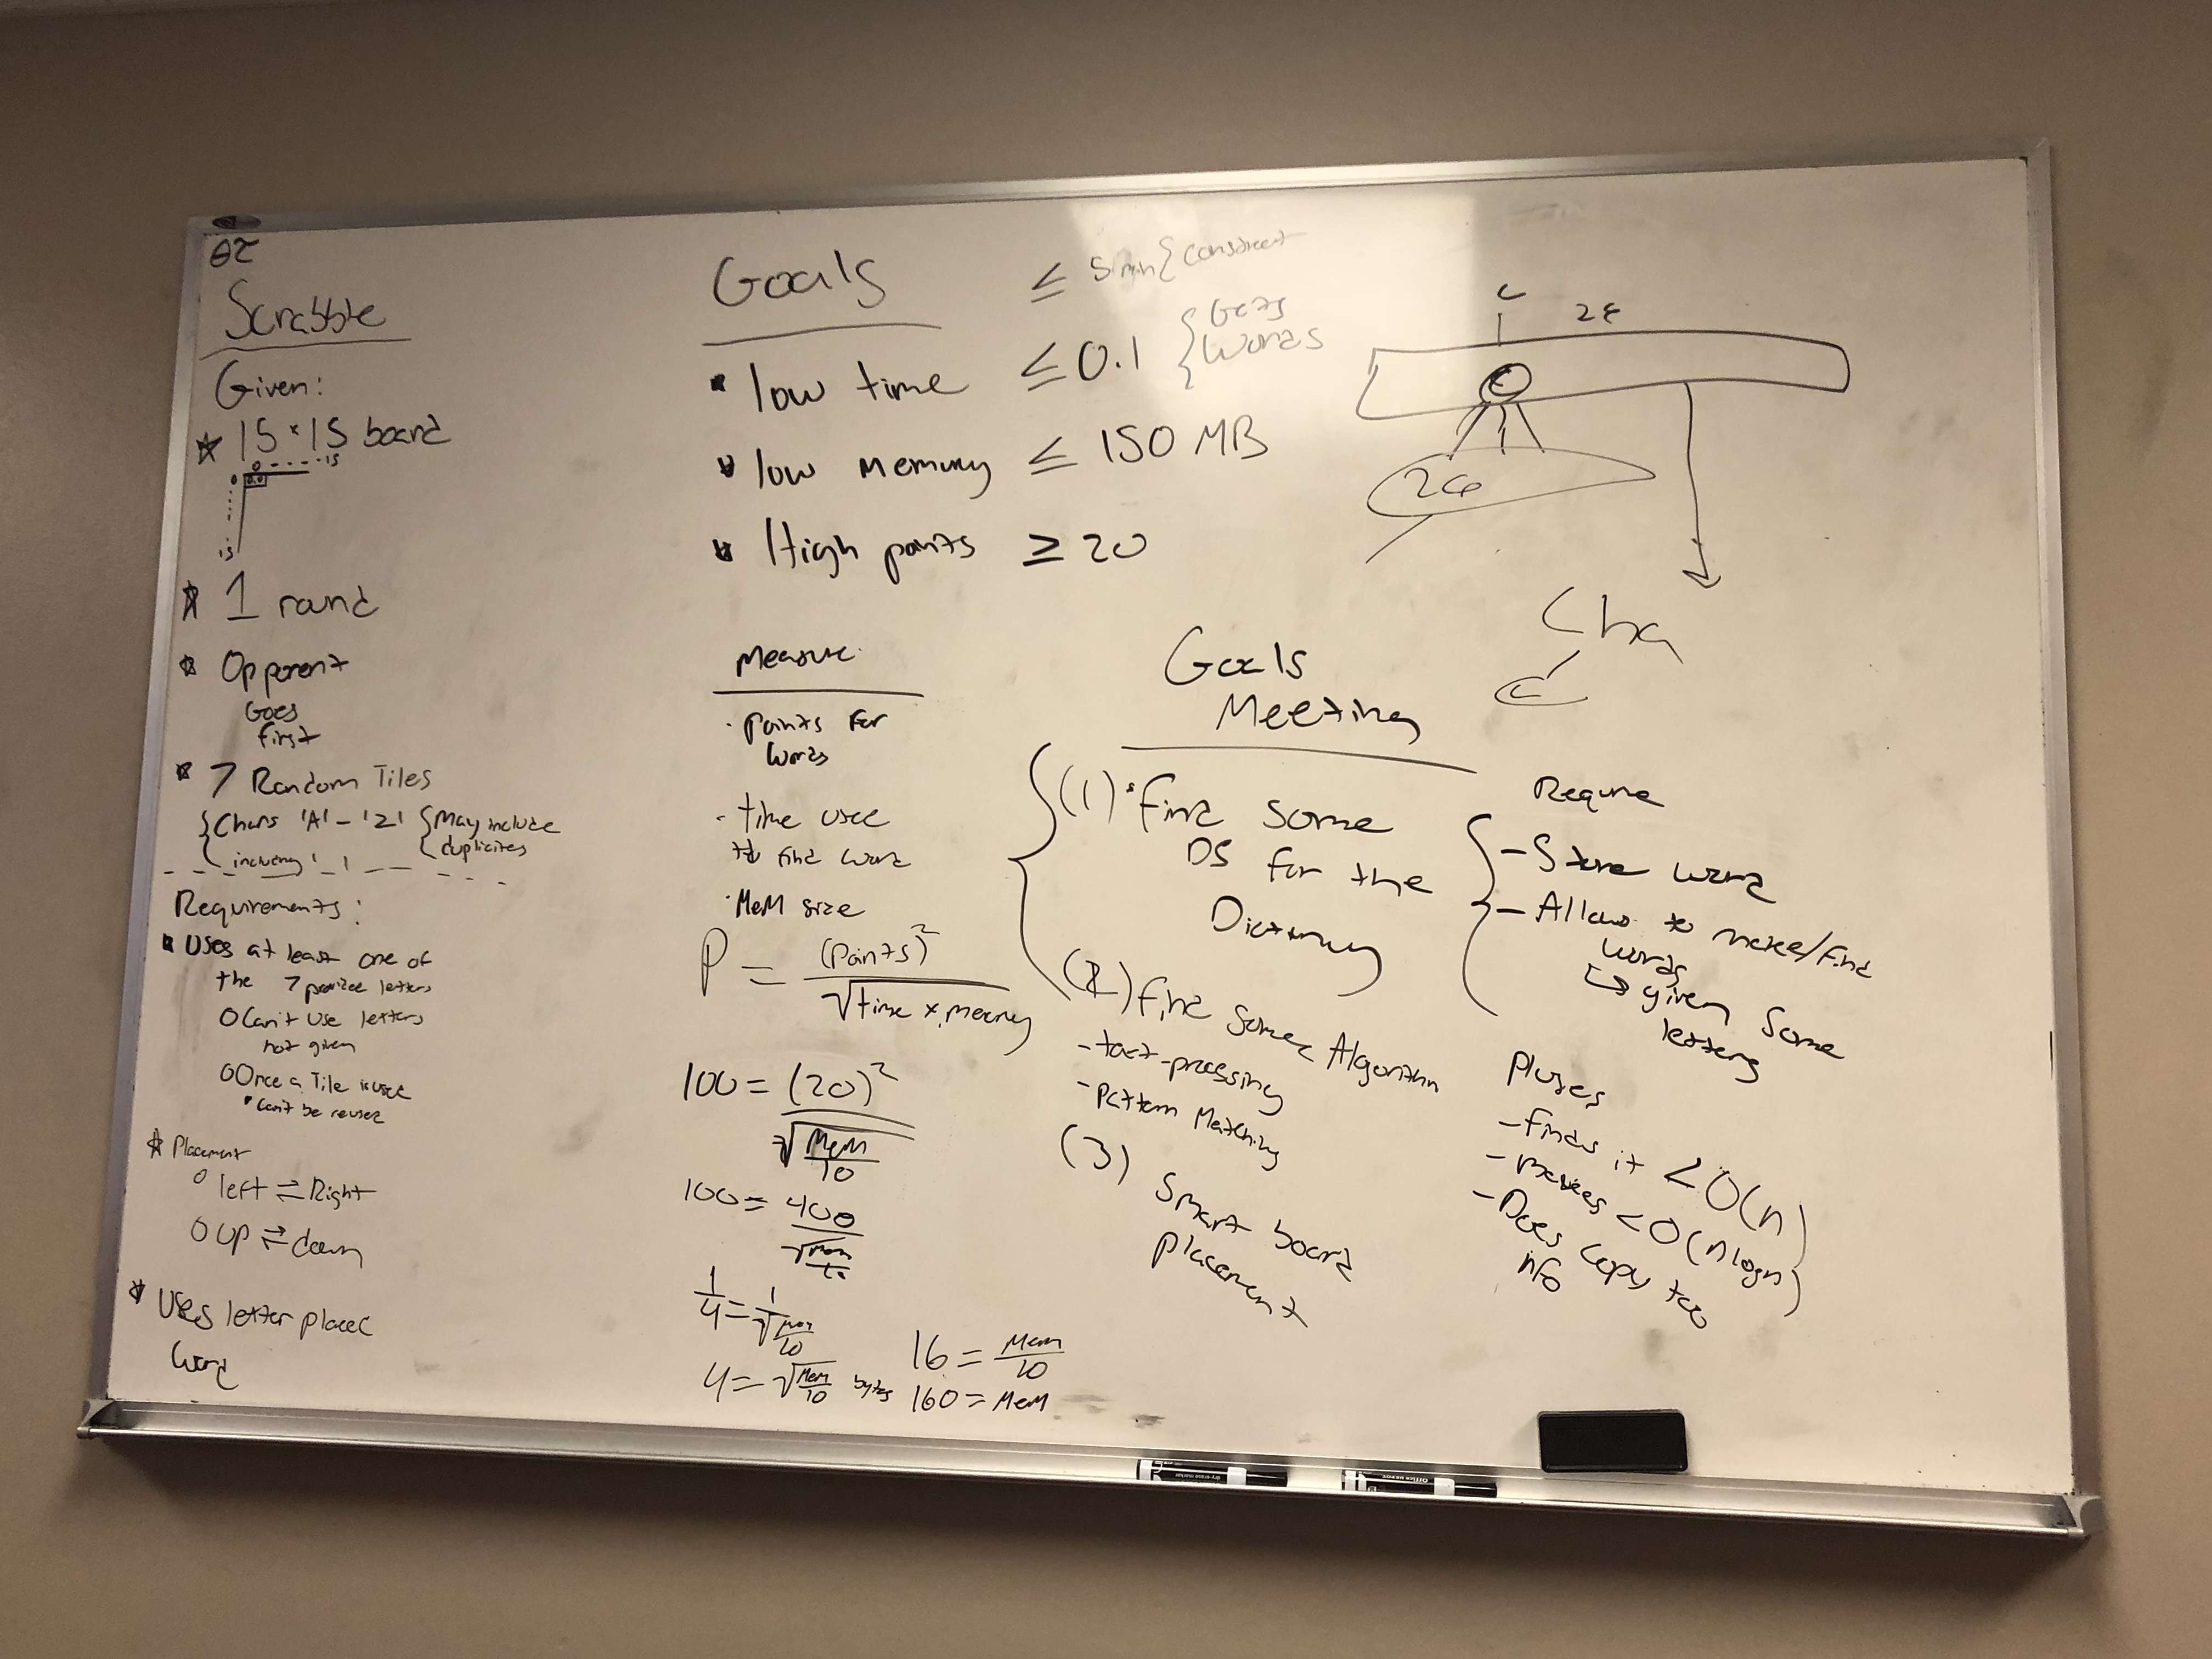 Scrabble
Given:
15 x 15 board
0 - - - - 15
0
0,0
15
1 round
Opponent
Goes
first
7 Random Tiles
Chars 'A' - 'Z'
including '_'
May include
duplicates
Requirements:
Uses at least one of
the 7 letters
Can't use letters
not given
Once a Tile is used
Can't be reused
Placement
left ⇄ Right
up ⇄ down
Uses letter placed
word
Goals
≤ 5 min { construct
low time ≤ 0.1 { Gets
words
low memory ≤ 150 MB
High points ≥ 20
Measure
points for
words
time used
to find word
Mem size
P = (points)² / √time x memory
100 = (20)² / √Mem/10
100 = 400 / √Mem/10
1/4 = 1/√Mem/10
4 = √Mem/10 bytes
16 = Mem/10
160 = Mem
26
Cha
c
Goals
Meeting
(1) Find some
DS for the
Dictionary
(2) Find some Algorithm
- text-processing
- pattern Matching
(3) Smart board
placement
Require
- Store word
- Allows to make/find
words
↳ given some
letters
Pluses
- Finds it < O(n)
- makes < O(n log n)
- Does copy too
info